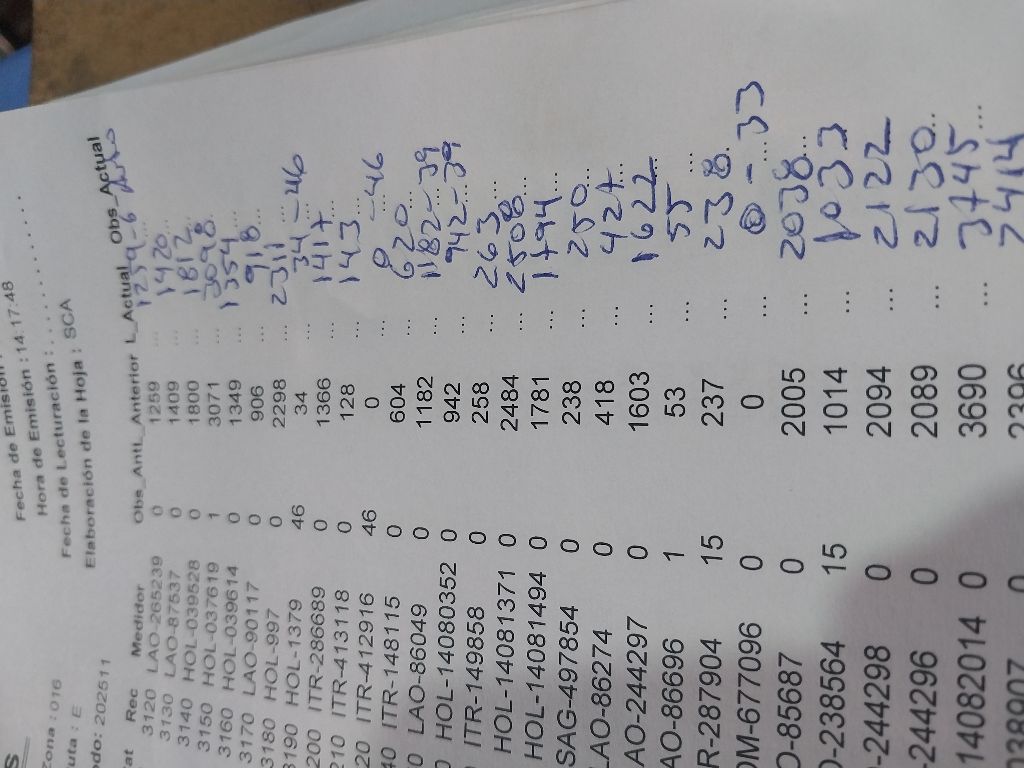 S
Fecha de Emisión
Hora de Emisión : 14:17:48
Zona : 016 Fecha de Lecturación : . . . . . . . . . . . . . .
uta : E Elaboración de la Hoja : SCA
do: 202511
at Rec Medidor Obs_Anti_Anterior L_Actual Obs_Actual
3120 LAO-265239 0 1259 ...
3130 LAO-87537 0 1409 ... 1420
3140 HOL-039528 0 1800 ... 1812
3150 HOL-037619 1 3071 ... 3098
3160 HOL-039614 0 1349 ... 1354
3170 LAO-90117 0 906 ... 918
3180 HOL-997 0 2298 ... 2311
3190 HOL-1379 46 34 ... 34 -46
200 ITR-286689 0 1366 ... 1417
210 ITR-413118 0 128 ... 143
20 ITR-412916 46 0 ... 0 -46
40 ITR-148115 0 604 ... 620
0 LAO-86049 0 1182 ... 1182-39
0 HOL-14080352 0 942 ... 942-39
ITR-149858 0 258 ... 263
HOL-14081371 0 2484 ... 2508
HOL-14081494 0 1781 ... 1794
SAG-497854 0 238 ... 250
LAO-86274 0 418 ... 427
AO-244297 0 1603 ... 1622
AO-86696 1 53 ... 55
R-287904 15 237 ... 238
OM-677096 0 0 ... 0 - 33
O-85687 0 2005 ... 2038
O-238564 15 1014 ... 1033
-244298 0 2094 ... 2122
-244296 0 2089 ... 2130
14082014 0 3690 ... 3745
038907 0 2396 2414